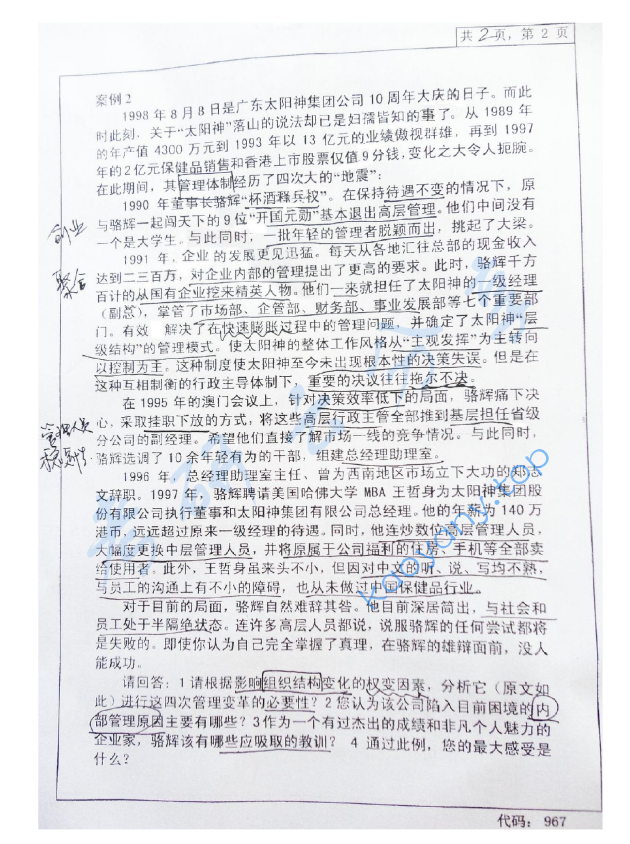 共2页，第 2 页
案例 2
1998 年 8 月 8 日是广东太阳神集团公司 10 周年大庆的日子。而此
时此刻，关于“太阳神”落山的说法却已是妇孺皆知的事了。从 1989 年
的年产值 4300 万元到 1993 年以 13 亿元的业绩傲视群雄，再到 1997
年的 2 亿元保健品销售和香港上市股票仅值 9 分钱，变化之大令人扼腕。
在此期间，其管理体制经历了四次大的“地震”：
1990 年董事长骆辉“杯酒释兵权”。在保持待遇不变的情况下，原
与骆辉一起闯天下的 9 位“开国元勋”基本退出高层管理。他们中间没有
一个是大学生。与此同时，一批年轻的管理者脱颖而出，挑起了大梁。
创业
1991 年，企业的发展更见迅猛。每天从各地汇往总部的现金收入
达到二三百万，对企业内部的管理提出了更高的要求。此时，骆辉千方
百计的从国有企业挖来精英人物。他们一来就担任了太阳神的一级经理
（副总），掌管了市场部、企管部、财务部、事业发展部等七个重要部
门。有效 解决了在快速膨胀过程中的管理问题，并确定了太阳神“层
级结构”的管理模式。使太阳神的整体工作风格从“主观发挥”为主转向
以控制为主。这种制度使太阳神至今未出现根本性的决策失误。但是在
这种互相制衡的行政主导体制下，重要的决议往往拖尔不决。
在 1995 年的澳门会议上，针对决策效率低下的局面，骆辉痛下决
心，采取挂职下放的方式，将这些高层行政主管全部推到基层担任省级
分公司的副经理。希望他们直接了解市场一线的竞争情况。与此同时，
骆辉选调了 10 余年轻有为的干部，组建总经理助理室。
管理人员
1996 年，总经理助理室主任、曾为西南地区市场立下大功的郑志
文辞职。1997 年，骆辉聘请美国哈佛大学 MBA 王哲身为太阳神集团股
份有限公司执行董事和太阳神集团有限公司总经理。他的年薪为 140 万
港币，远远超过原来一级经理的待遇。同时，他连炒数位高层管理人员，
大幅度更换中层管理人员，并将原属于公司福利的住房、手机等全部卖
给使用者。此外，王哲身虽来头不小，但因对中文的听、说、写均不熟，
与员工的沟通上有不小的障碍，也从未做过中国保健品行业。
对于目前的局面，骆辉自然难辞其咎。他目前深居简出，与社会和
员工处于半隔绝状态。连许多高层人员都说，说服骆辉的任何尝试都将
是失败的。即使你认为自己完全掌握了真理，在骆辉的雄辩面前，没人
能成功。
请回答：1 请根据影响组织结构变化的权变因素，分析它（原文如
此）进行这四次管理变革的必要性？2 您认为该公司陷入目前困境的内
部管理原因主要有哪些？3 作为一个有过杰出的成绩和非凡个人魅力的
企业家，骆辉该有哪些应吸取的教训？ 4 通过此例，您的最大感受是
什么？
代码：967
kaoyany.top